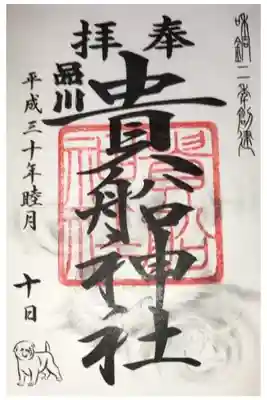 和銅二年創建
奉拝
品川
貴船神社
平成三十年睦月
十日